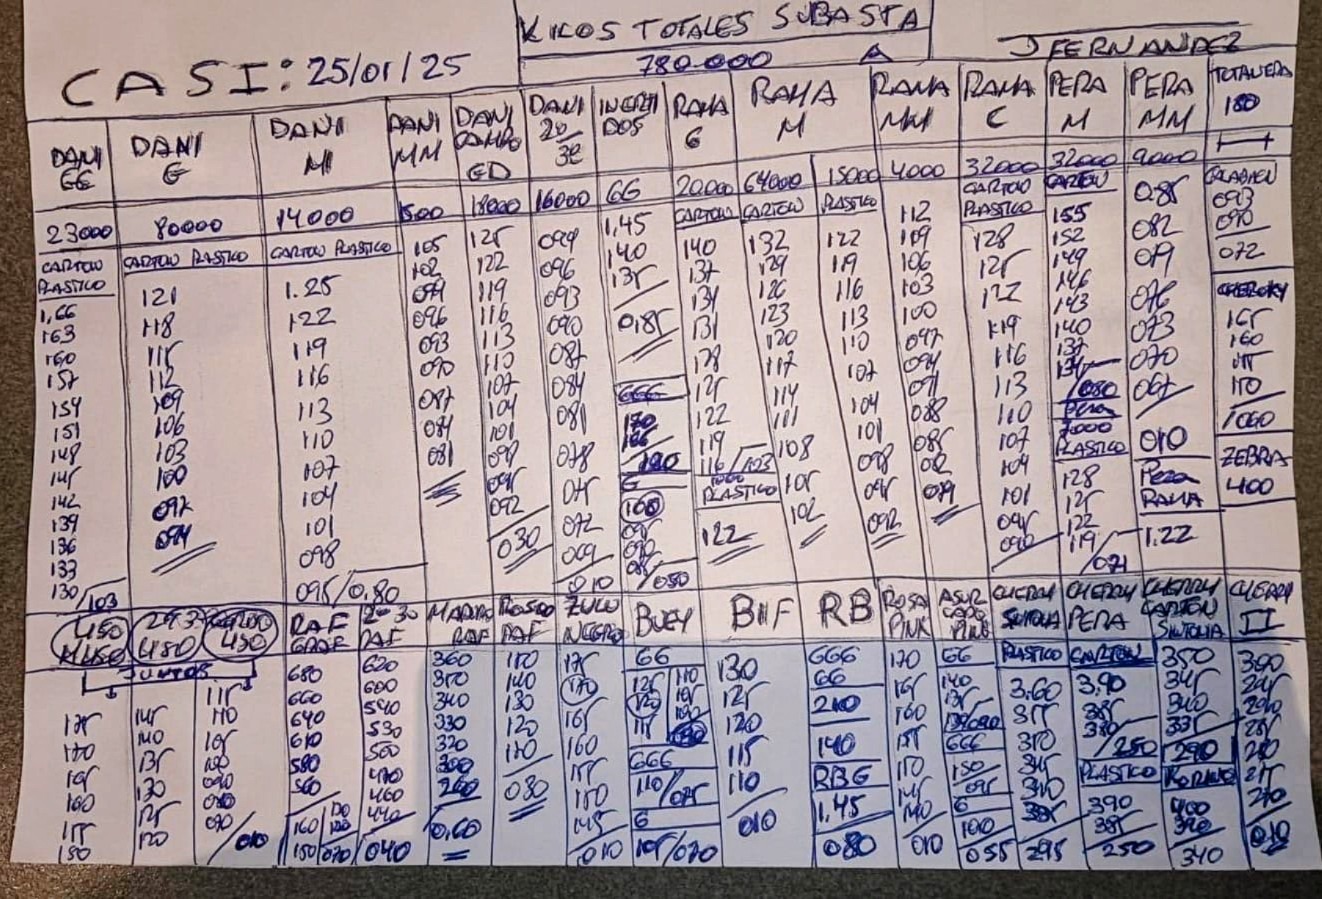 KILOS TOTALES SUBASTA
780.000 A
CASI: 25/01/25
J FERNANDEZ
DANI GG
23000
CARTON
PLASTICO
1,66
163
160
157
154
151
148
145
142
139
136
133
130/103
DANI G
80000
CARTON PLASTICO
121
118
115
112
109
106
103
100
097
094
DANI M
14000
CARTON PLASTICO
1.25
122
119
116
113
110
107
104
101
098
095/0,80
DANI MM
1500
105
102
099
096
093
090
087
084
081
DANI
GD
18000
125
122
119
116
113
110
107
104
101
098
095
092
030
DANI
20/30
16000
099
096
093
090
087
084
081
078
075
072
069
010
INERTIDOS
GG
1,45
140
135
0,85
GGG
170
166
120
G
100
095
090
085
/050
RAMA G
20.000
CARTON
140
137
134
131
128
125
122
119
116/103
1000
PLASTICO
122
RAMA M
64000
CARTON
132
129
126
123
120
117
114
111
108
105
102
15000
PLASTICO
122
119
116
113
110
107
104
101
098
095
092
RAMA MM
4000
112
109
106
103
100
097
094
091
088
085
082
079
RAMA C
32000
CARTON
PLASTICO
128
125
122
119
116
113
110
107
104
101
095
090
PERA M
32000
CARTON
155
152
149
146
143
140
137
134
/080
PERA
7000
PLASTICO
128
125
122
119
/071
PERA MM
9000
0.85
082
079
076
073
070
067
010
Pera
RAMA
1.22
TOTALVERA
180
093
090
072
CHEROKY
165
160
155
150
/060
ZEBRA
400
450
M450
JUNTOS
175
170
165
160
155
150
293
450
145
140
135
130
125
120
450
115
110
105
100
090
080
090
/010
RAF GRADE
680
660
640
610
580
560
160/
150/070
20 30
RAF
620
600
540
530
500
470
460
440
/040
RAF
360
350
340
330
320
300
260
0,60
ROSADO
RAF
150
140
130
120
110
080
ZULU
NEGRO
175
170
165
160
155
150
145
010
BUEY
GG
125
120
115
110
105
100
GGG
110/075
G
105/070
BIF
130
125
120
115
110
010
RB
GGG
GG
210
140
RBG
1,45
080
ROSA
PINK
170
165
160
155
150
145
140
010
ASUR
PINK
GG
140
135
GGG
150
095
G
100
055
CHERRY
SINTOLIA
PLASTICO
3.60
355
350
345
340
335
295
CHERRY
PERA
CARTON
3,90
385
380
/250
PLASTICO
390
385
250
CHERRY
CARTON
SINTOLIA
350
345
340
335
290
400
390
340
CHERRY
II
300
295
290
285
280
275
270
010